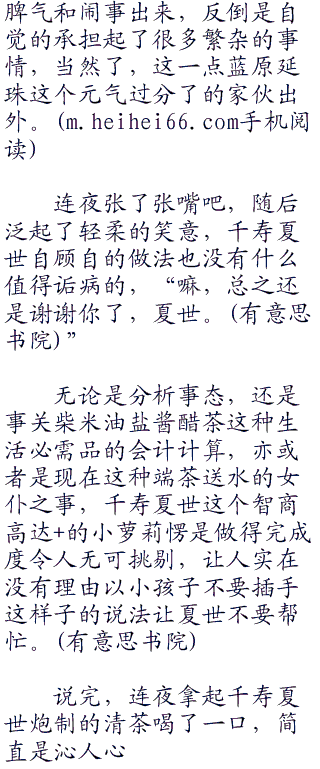 脾气和闹事出来，反倒是自
觉的承担起了很多繁杂的事
情，当然了，这一点蓝原延
珠这个元气过分了的家伙出
外。(m.heihei66.com手机阅
读)
连夜张了张嘴吧，随后
泛起了轻柔的笑意，千寿夏
世自顾自的做法也没有什么
值得诟病的，“嘛，总之还
是谢谢你了，夏世。(有意思
书院)”
无论是分析事态，还是
事关柴米油盐酱醋茶这种生
活必需品的会计计算，亦或
者是现在这种端茶送水的女
仆之事，千寿夏世这个智商
高达+的小萝莉愣是做得完成
度令人无可挑剔，让人实在
没有理由以小孩子不要插手
这样子的说法让夏世不要帮
忙。(有意思书院)
说完，连夜拿起千寿夏
世炮制的清茶喝了一口，简
直是沁人心